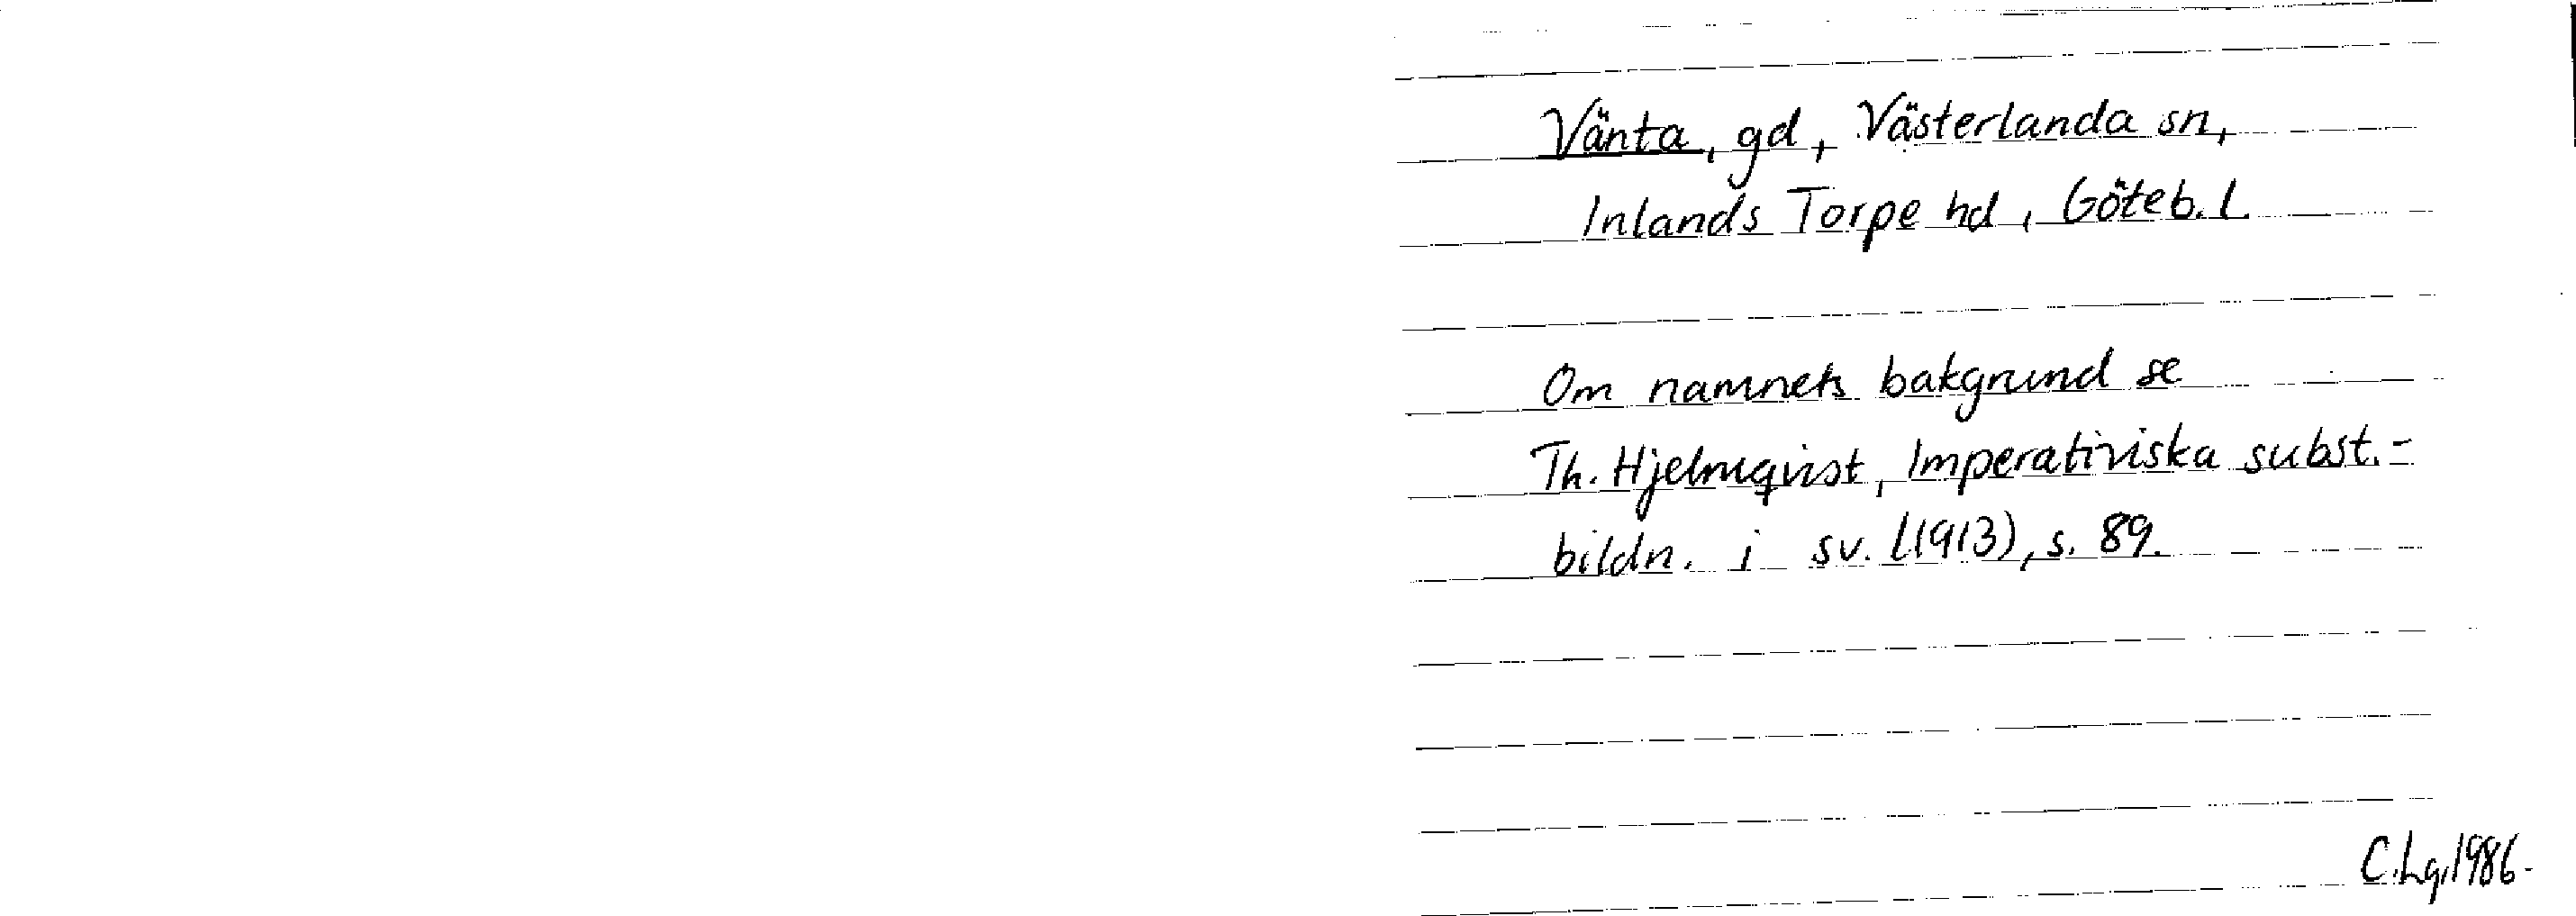 Vänta, gd, Västerlanda sn,
Inlands Torpe hd, Göteb. l.
Om namnets bakgrund se
Th. Hjelmqvist, Imperativiska subst.-
bildn. i sv. (1913), s. 89.
C. Lg, 1986.